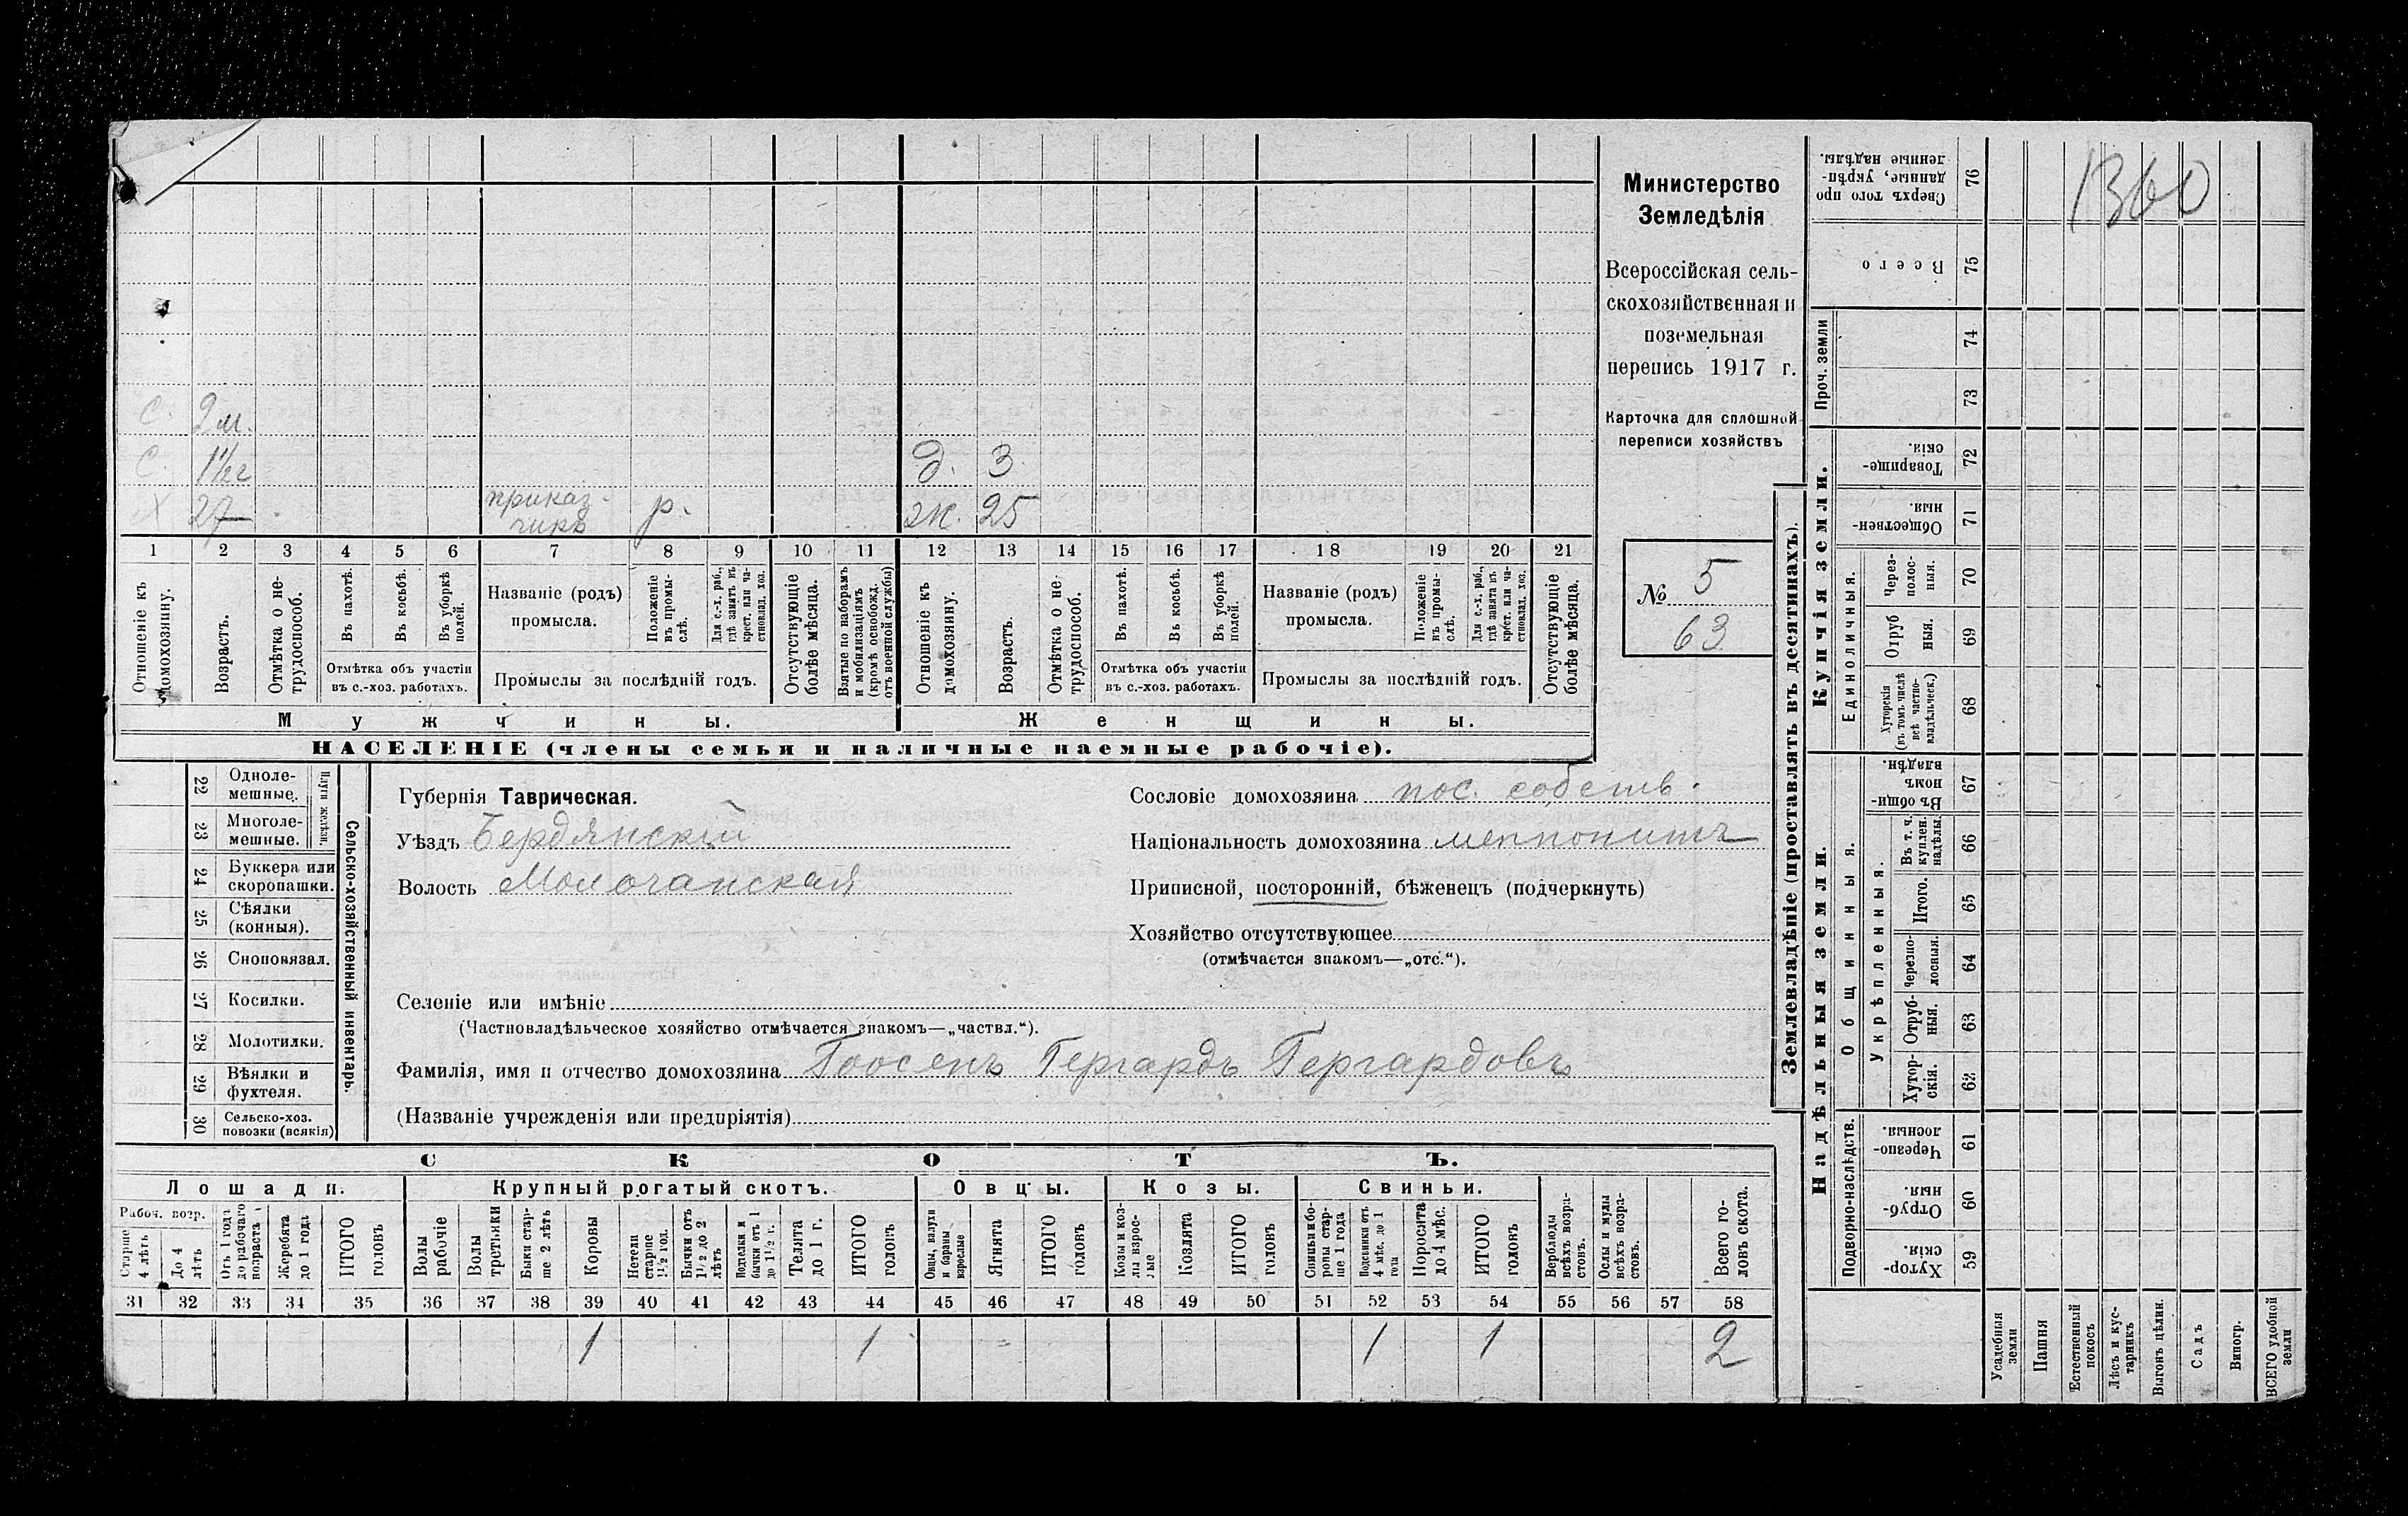 1360
Министерство
Земледѣлія
Всероссійская сель-
скохозяйственная и
поземельная
перепись 1917 г.
Карточка для сплошной
переписи хозяйствъ
№ 5
63
С. 2 м.
С. 1½ г
Д. 3
Х 27 приказ-
чикъ р.
ж. 25
1 2 3 4 5 6 7 8 9 10 11 12 13 14 15 16 17 18 19 20 21
Отношеніе къ домохозяину.
Возрастъ.
Отмѣтка о не-трудоспособ.
Въ пахотѣ.
Въ косьбѣ.
Въ уборкѣ полей.
Отмѣтка объ участіи
въ с.-хоз. работахъ.
Названіе (родъ)
промысла.
Положеніе въ промы-слѣ.
Для с.-х. раб., гдѣ занятъ въ крест. или ча-стновлад. хоз.
Промыслы за послѣдній годъ.
Отсутствующіе болѣе мѣсяца.
Взятые по наборамъ и мобилизаціямъ (кромѣ освобожд. отъ военной службы)
Отношеніе къ домохозяину.
Возрастъ.
Отмѣтка о не-трудоспособ.
Въ пахотѣ.
Въ косьбѣ.
Въ уборкѣ полей.
Отмѣтка объ участіи
въ с.-хоз. работахъ.
Названіе (родъ)
промысла.
Положеніе въ промы-слѣ.
Для с.-х. раб., гдѣ занята въ крест. или ча-стновлад. хоз.
Промыслы за послѣдній годъ.
Отсутствующіе болѣе мѣсяца.
Мужчины. Женщины.
НАСЕЛЕНІЕ (члены семьи и наличные наемные рабочіе).
22 Одноле-мешные.
23 Многоле-мешные.
Плуги желѣзн.
24 Буккера или скоропашки.
25 Сѣялки (конныя).
26 Сноповязал.
27 Косилки.
28 Молотилки.
29 Вѣялки и фухтеля.
30 Сельско-хоз. повозки (всякія)
Сельско-хозяйственный инвентарь.
Губернія Таврическая.
Уѣздъ Бердянскій
Волость Молочанская
Сословіе домохозяина пос. собств.
Національность домохозяина меннонитъ
Приписной, посторонній, бѣженецъ (подчеркнуть)
Хозяйство отсутствующее
(отмѣчается знакомъ—„отс.“).
Селеніе или имѣніе
(Частновладѣльческое хозяйство отмѣчается знакомъ—„частвл.“).
Фамилія, имя и отчество домохозяина Гоосенъ Гергардъ Гергардовъ
(Названіе учрежденія или предпріятія)
СКОТЪ.
Лошади. Крупный рогатый скотъ. Овцы. Козы. Свиньи.
Рабоч. возр.
Старше 4 лѣтъ
До 4 лѣтъ
Отъ 1 года до рабочаго возраста
Жеребята до 1 года
ИТОГО головъ
Волы рабочіе
Волы третьяки
Быки стар-ше 2 лѣтъ
Коровы
Нетели старше 1½ год.
Бычки отъ 1½ до 2 лѣтъ
Подтелки и бычки отъ 1 до 1½ г.
Телята до 1 г.
ИТОГО головъ
Овцы, валухи и бараны взрослые
Ягнята
ИТОГО головъ
Козы и коз-лы взрос-лые
Козлята
ИТОГО головъ
Свиньи и бо-ровы стар-ше 1 года
Подсвинки отъ 4 мѣс. до 1 года
Поросята до 4 мѣс.
ИТОГО головъ
Верблюды всѣхъ возра-стовъ.
Ослы и мулы всѣхъ возра-стовъ.
Всего го-ловъ скота.
31 32 33 34 35 36 37 38 39 40 41 42 43 44 45 46 47 48 49 50 51 52 53 54 55 56 57 58
1 1 1 1 2
Землевладѣніе (проставлять въ десятинахъ).
Надѣльныя земли. Купчія земли. Проч. земли
Подворно-наслѣдств.
Общинныя.
Укрѣпленныя.
Единоличныя.
Сверхъ того про данные, укрѣп-ленные надѣлы. 76
Всего 75
74
73
Товарище-скія. 72
Обществен-ныя. 71
Через-полос-ныя. 70
Отруб ныя. 69
Хуторскія (въ томъ числѣ всѣ частно-владѣльческ.) 68
Въ общин-номъ владѣн. 67
Въ т. ч. куплен. надѣлы. 66
Итого. 65
Черезпо-лосныя. 64
Отруб-ныя. 63
Хутор-скія. 62
Черезпо-лосныя. 61
Отруб-ныя. 60
Хутор-скія. 59
Усадебныя земли
Пашня
Естественный покосъ
Лѣсъ и кус-тарникъ
Выгонъ цѣлин.
Садъ
Виногр.
ВСЕГО удобной земли